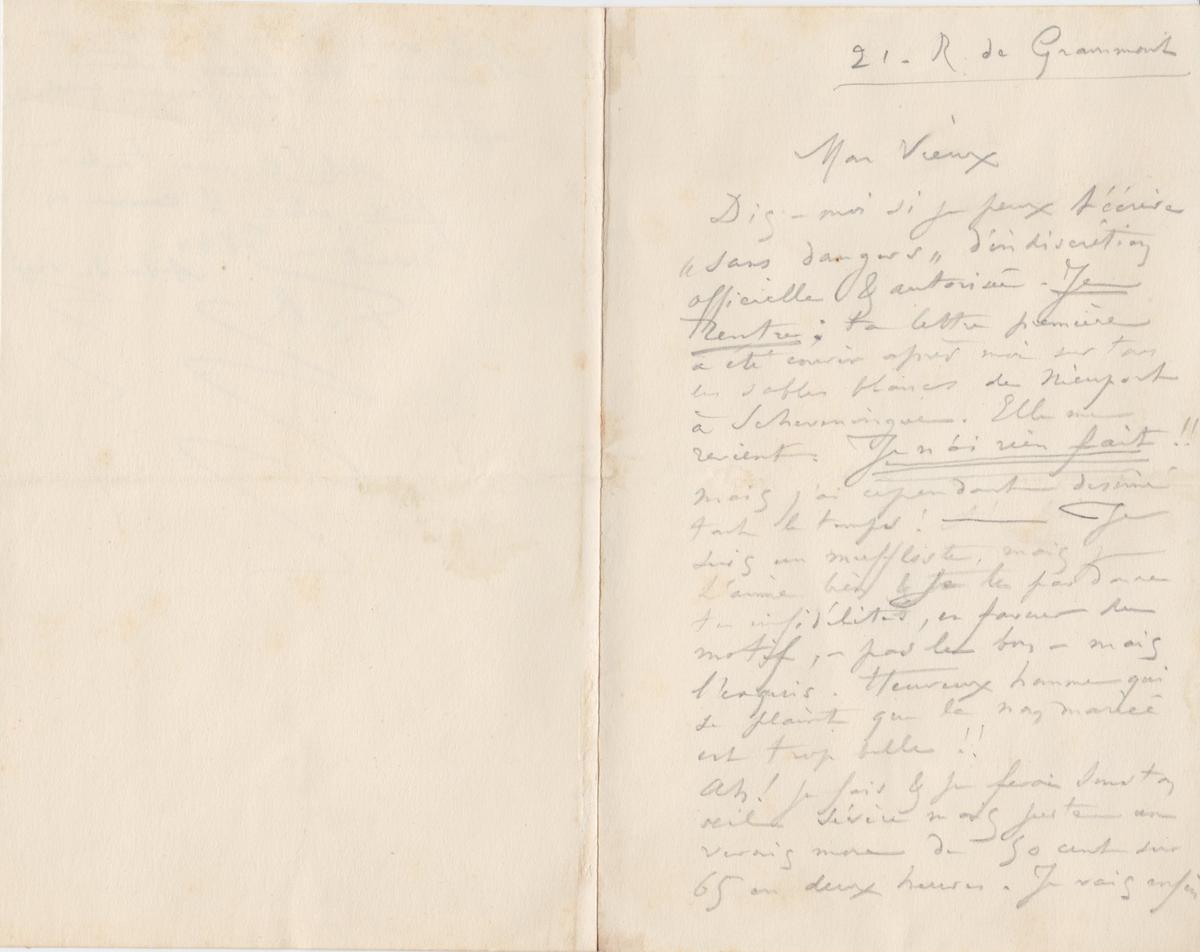 21 - R. de Grammont
Mon Vieux
Dis-moi si je peux t'écrire
"sans dangers" d'indiscrétion
officielle & autorisée. Je
Rentre; ta lettre première
a été courir après moi sur tous
les sables blancs de Nieuport
à Scheveningue. Elle me
revient. Je n'ai rien fait!!
mais j'ai cependant dessiné
tout le temps! Je
suis un muffliste, mais je
t'aime bien & Je te pardonne
tes infidélités, en faveur du
motif, - pas le bon - mais
l'exquis. Heureux homme qui
se plaint que la non mariée
est trop belle!!
Ah! je fais & je ferai sous ton
oeil sévère mais juste un
vernis mou de 50 cent sur
65 en deux heures. Je vais enfin